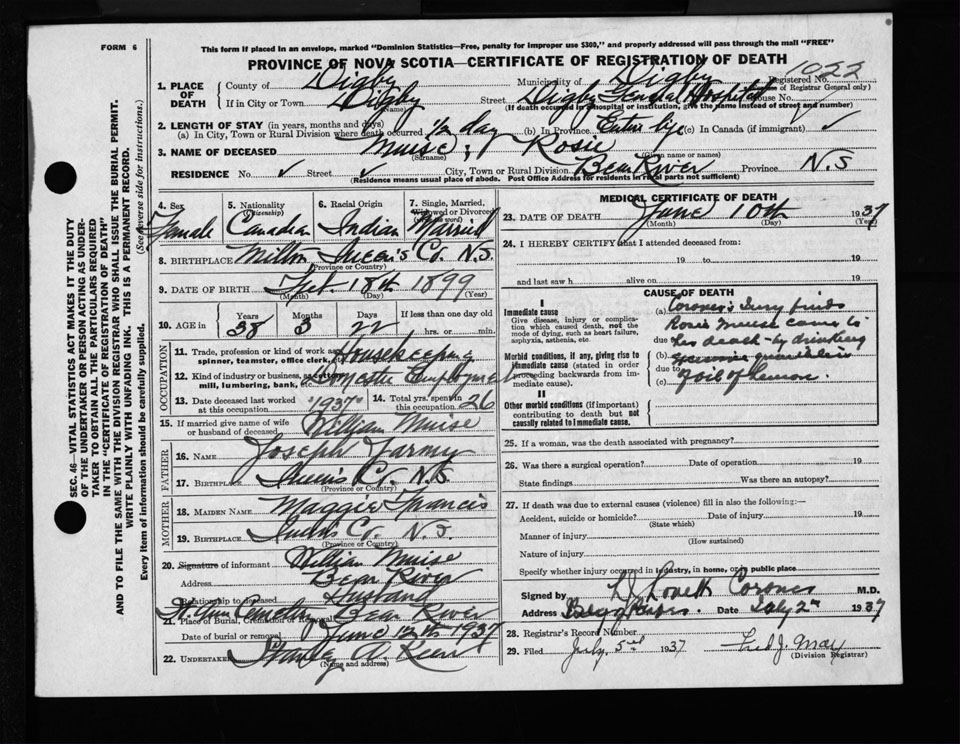 FORM 6
This form if placed in an envelope, marked "Dominion Statistics—Free, penalty for improper use $300," and properly addressed will pass through the mail "FREE"
PROVINCE OF NOVA SCOTIA—CERTIFICATE OF REGISTRATION OF DEATH
1022
1. PLACE OF DEATH
County of Digby Municipality of Digby Registered No. (of Registrar General only)
If in City or Town Digby Street Digby General Hospital House No.
(If death occurred in hospital or institution, give the name instead of street and number)
2. LENGTH OF STAY (in years, months and days)
(a) In City, Town or Rural Division where death occurred 1/2 day (b) In Province Entire life (c) In Canada (if immigrant) ✓
3. NAME OF DECEASED Muise, Rosie
(Surname) (Given name or names)
RESIDENCE No. ✓ Street ✓ City, Town or Rural Division Bear River Province N.S
(Residence means usual place of abode. Post Office Address for residents in rural parts not sufficient)
4. Sex Female
5. Nationality (Citizenship) Canadian
6. Racial Origin Indian
7. Single, Married, Widowed or Divorced (word) Married
8. BIRTHPLACE Milton Queen's Co. N.S.
(Province or Country)
9. DATE OF BIRTH 18th 1899
(Month) (Day) (Year)
10. AGE in Years 38 Months 3 Days 22 If less than one day hrs. or min.
OCCUPATION
11. Trade, profession or kind of work as spinner, teamster, office clerk, Housekeeping
12. Kind of industry or business, as cotton mill, lumbering, bank, etc.
13. Date deceased last worked at this occupation 1937
14. Total yrs. spent in this occupation 26
15. If married give name of wife or husband of deceased William Muise
FATHER
16. NAME Joseph
17. BIRTHPLACE Queen's Co. N.S.
(Province or Country)
MOTHER
18. MAIDEN NAME Maggie Francis
19. BIRTHPLACE Queen's Co. N.S.
(Province or Country)
20. Signature of informant William Muise
Address Bear River
Relationship to deceased Husband
21. Place of Burial, Cremation or Removal Indian Cemetery Bear River
Date of burial or removal June 12th 1937
22. UNDERTAKER Stanley A.
(Name and address)
MEDICAL CERTIFICATE OF DEATH
23. DATE OF DEATH June 10th 1937
(Month) (Day) (Year)
24. I HEREBY CERTIFY that I attended deceased from:
19 to 19
and last saw h alive on 19
CAUSE OF DEATH
I
Immediate cause
Give disease, injury or complication which caused death, not the mode of dying, such as heart failure, asphyxia, asthenia, etc.
Morbid conditions, if any, giving rise to immediate cause (stated in order proceeding backwards from immediate cause).
II
Other morbid conditions (if important) contributing to death but not causally related to immediate cause.
(a) Coroner's Jury finds
Rosie Muise came to
due to her death by drinking
(b) excessive quantities
due to
(c) of oil of lemon.
25. If a woman, was the death associated with pregnancy?
26. Was there a surgical operation? Date of operation 19
State findings Was there an autopsy?
27. If death was due to external causes (violence) fill in also the following:—
Accident, suicide or homicide? Date of injury 19
(State which)
Manner of injury
(How sustained)
Nature of injury
Specify whether injury occurred in industry, in home, or in public place
Signed by Lovett Coroner M.D.
Address Date July 2nd 1937
28. Registrar's Record Number
29. Filed July 5rd 1937 Fred J. May
(Division Registrar)
SEC. 46—VITAL STATISTICS ACT MAKES IT THE DUTY
OF THE UNDERTAKER OR PERSON ACTING AS UNDER-
TAKER TO OBTAIN ALL THE PARTICULARS REQUIRED
IN THE "CERTIFICATE OF REGISTRATION OF DEATH"
AND TO FILE THE SAME WITH THE DIVISION REGISTRAR WHO SHALL ISSUE THE BURIAL PERMIT.
WRITE PLAINLY WITH UNFADING INK. THIS IS A PERMANENT RECORD.
Every item of information should be carefully supplied. (See reverse side for instructions.)